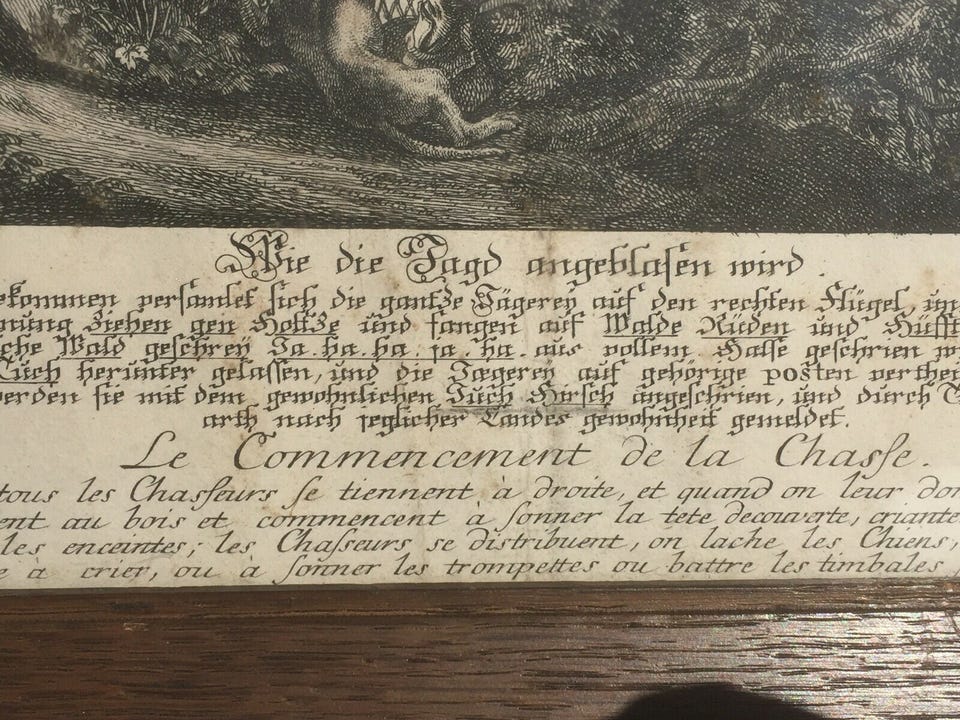 Wie die Jagd angeblasen wird.
ekommen versamlet sich die gantze Jägerey auf den rechten Flügel, un
nung ziehen gen Holtze und fangen auf Walde Rüden und Hüfft
che Wald geschrey Ja. ha. ha. ja. ha. aus vollem Halse geschrien w
Tuch herunter gelassen, und die Jægerey auf gehörige posten verthei
erden sie mit dem gewohnlichen Juch Hirsch angeschrien, und durch
arth nach jeglicher Landes gewohnheit gemeldet.
Le Commencement de la Chasse.
tous les Chasseurs se tiennent à droite, et quand on leur don
ent au bois et commencent à sonner la tete decouverte, criante
les enceintes; les Chasseurs se distribuent, on lache les Chiens,
e à crier, ou à sonner les trompettes ou battre les timbales